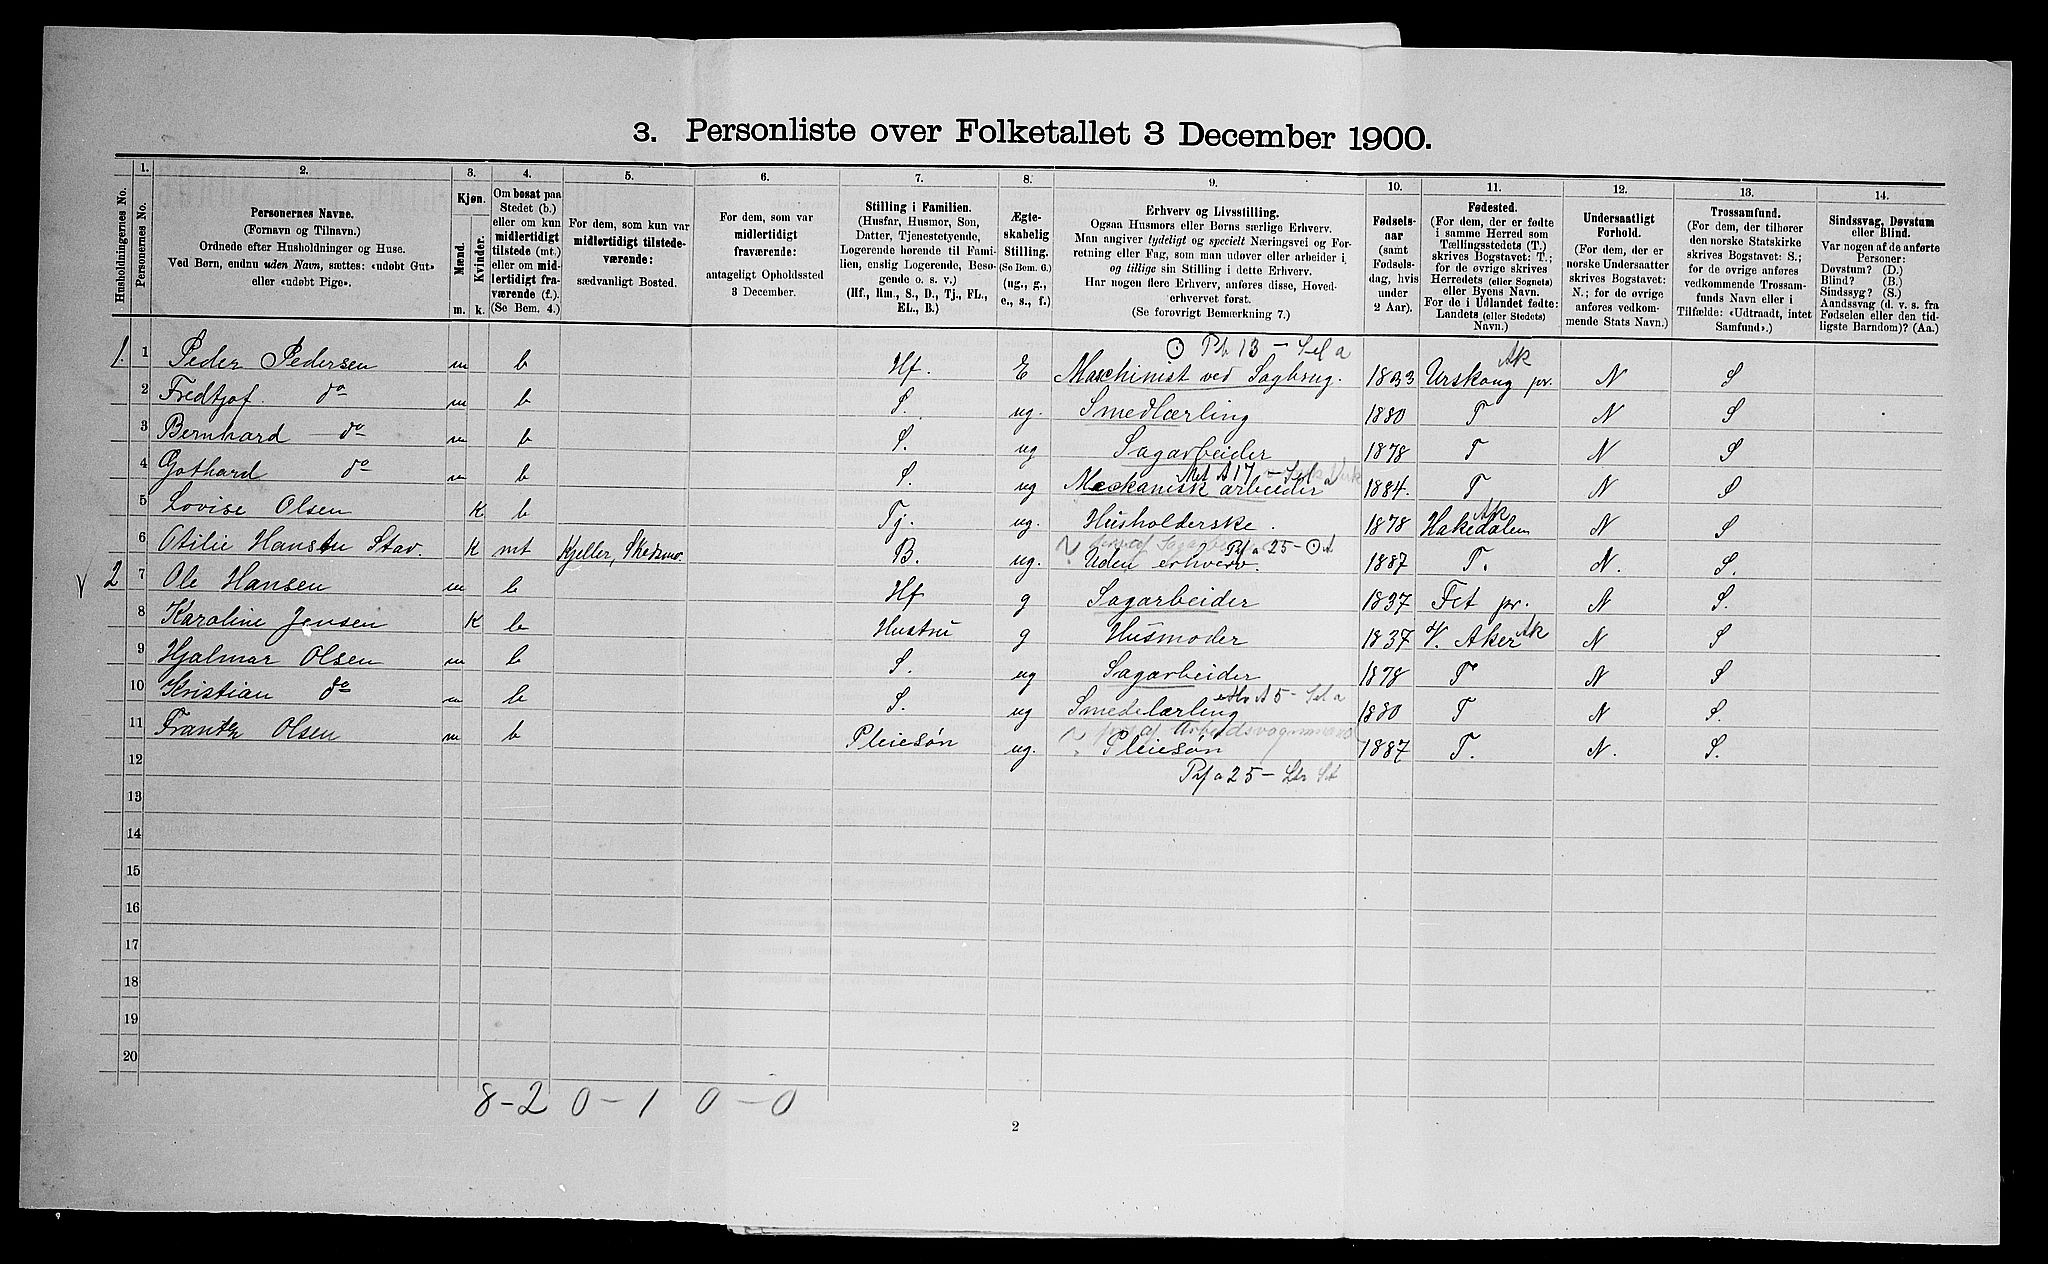 3. Personliste over Folketallet 3 December 1900.
1. 2. 3. 4. 5. 6. 7. 8. 9. 10. 11. 12. 13. 14.
Husholdningernes No.
Personernes No.
Personernes Navne.
(Fornavn og Tilnavn.)
Ordnede efter Husholdninger og Huse.
Ved Børn, endnu uden Navn, sættes: «udøbt Gut»
eller «udøbt Pige».
Kjøn.
Mænd.
Kvinder.
m. k.
Om bosat paa
Stedet (b.)
eller om kun
midlertidigt
tilstede (mt.)
eller om mid-
lertidigt fra-
værende (f.).
(Se Bem. 4.)
For dem, som kun var
midlertidigt tilstede-
værende:
sædvanligt Bosted.
For dem, som var
midlertidigt
fraværende:
antageligt Opholdssted
3 December.
Stilling i Familien.
(Husfar, Husmor, Søn,
Datter, Tjenestetyende,
Logerende hørende til Fami-
lien, enslig Logerende, Besø-
gende o. s. v.)
(Hf., Hm., S., D., Tj., FL.,
EL., B.)
Ægte-
skabelig
Stilling.
(Se Bem. 6.)
(ug., g.,
e., s., f.)
Erhverv og Livsstilling.
Ogsaa Husmors eller Børns særlige Erhverv.
Man angiver tydeligt og specielt Næringsvei og For-
retning eller Fag, som man udøver eller arbeider i
og tillige sin Stilling i dette Erhverv.
Har nogen flere Erhverv, anføres disse, Hoved-
erhvervet først.
(Se forøvrigt Bemerkning 7.)
Fødsels-
aar
(samt
Fødsels-
dag, hvis
under
2 Aar).
Fødested.
(For dem, der er fødte
i samme Herred som
Tællingsstedets (T.)
skrives Bogstavet: T.;
for de øvrige skrives
Herredets (eller Sognets)
eller Byens Navn.
For de i Udlandet fødte:
Landets (eller Stedets)
Navn.)
Undersaatligt
Forhold.
(For dem, der er
norske Undersaatter
skrives Bogstavet:
N.; for de øvrige
anføres vedkom-
mende Stats Navn.)
Trossamfund.
(For dem, der tilhører
den norske Statskirke
skrives Bogstavet: S.;
for de øvrige anføres
vedkommende Trossam-
funds Navn eller i
Tilfælde: «Udtraadt, intet
Samfund».)
Sindssvag, Døvstum
eller Blind.
Var nogen af de anførte
Personer:
Døvstum? (D.)
Blind? (B.)
Sindssyg? (S.)
Aandssvag (d. v. s. fra
Fødselen eller den tid-
ligste Barndom)? (Aa.)
Pb 13 - Sel a
1. 1 Peder Pedersen m b Hf. E Maschinist ved Sagbrug. 1833 Urskoug pr. Ak N S
2 Fredtjof do m b S. ug. Smedlærling 1880 T N S
3 Bernhard do m b S. ug Sagarbeider 1878 T N S
Met A 17 - Sel a
4 Gothard do m b S. ug Meckanisk arbeider 1884. T N S
5 Lovise Olsen K b Tj. ug. Husholderske. 1878 Hakedalen Ak N S
Pf a 25 - A
6 Otilie Hansen Stav. K mt Kjeller, Skedsmo. B. ug. Uden erhverv. 1887 T. N. S.
2 7 Ole Hansen m b Hf g Sagarbeider 1837 Fet pr. N S.
8 Karoline Jensen K b Hustru g Husmoder 1837 V. Aker Ak N S
9 Hjalmar Olsen m b S. ug Sagarbeider 1878 T N S
A 5 - Sel a
10 Kristian do m b S. ug Smedelærling 1880 T N S.
af Arbeidsvognmand
11 Frantz Olsen m b Pleiesøn ug. Pleiesøn 1887 T. N. S.
12 Pf a 25 -
13
14
15
16
17
18
19
20
8-2 0-1 0-0
2